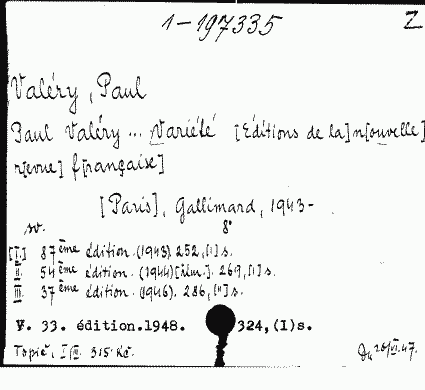 1-197335 Z
Valéry, Paul
Paul Valéry ... Variété [Éditions de la] n[ouvelle]
r[evue] f[rançaise]
[Paris], Gallimard, 1943-
sv. 8°
[I.] 87ème édition. (1943). 252, [1] s.
II. 54ème édition. (1944) [ilm.]. 269, [1] s.
III. 37ème édition. (1946). 286, [II] s.
V. 33. édition.1948. 324,(1)s.
Topič, I/III. 315 Kč.